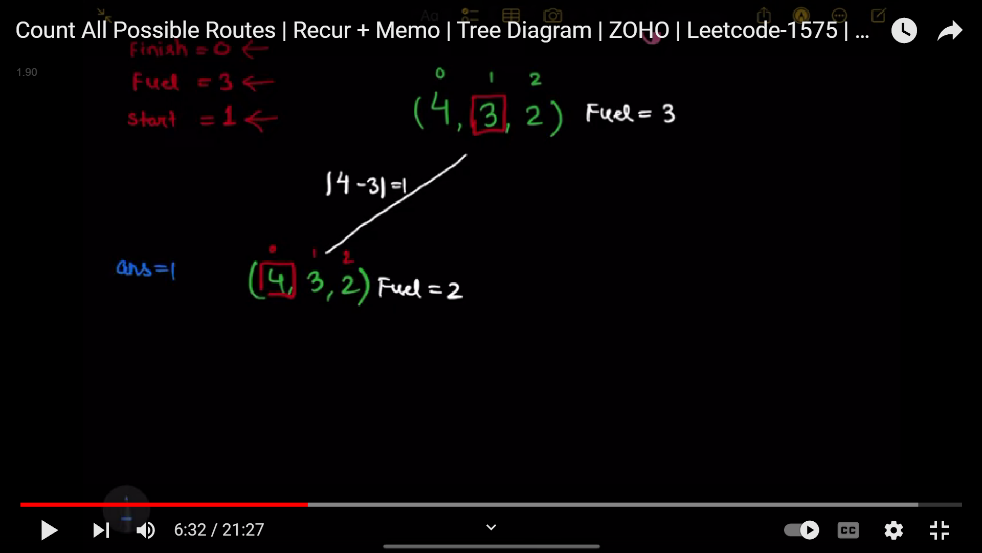 Count All Possible Routes | Recur + Memo | Tree Diagram | ZOHO | Leetcode-1575 | ...
Finish = 0 ←
1.90
Fuel = 3 ←
Start = 1 ←
0 1 2
(4, 3, 2) Fuel = 3
|4-3|=1
ans=1
0 1 2
(4, 3, 2) Fuel = 2
6:32 / 21:27
CC